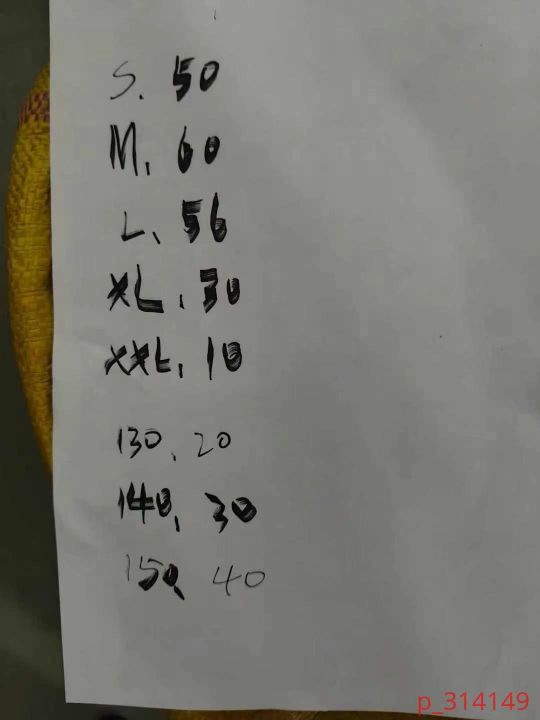 S. 50
M、60
L、56
XL、30
XXL、10
130、20
140、30
150、40
p_314149